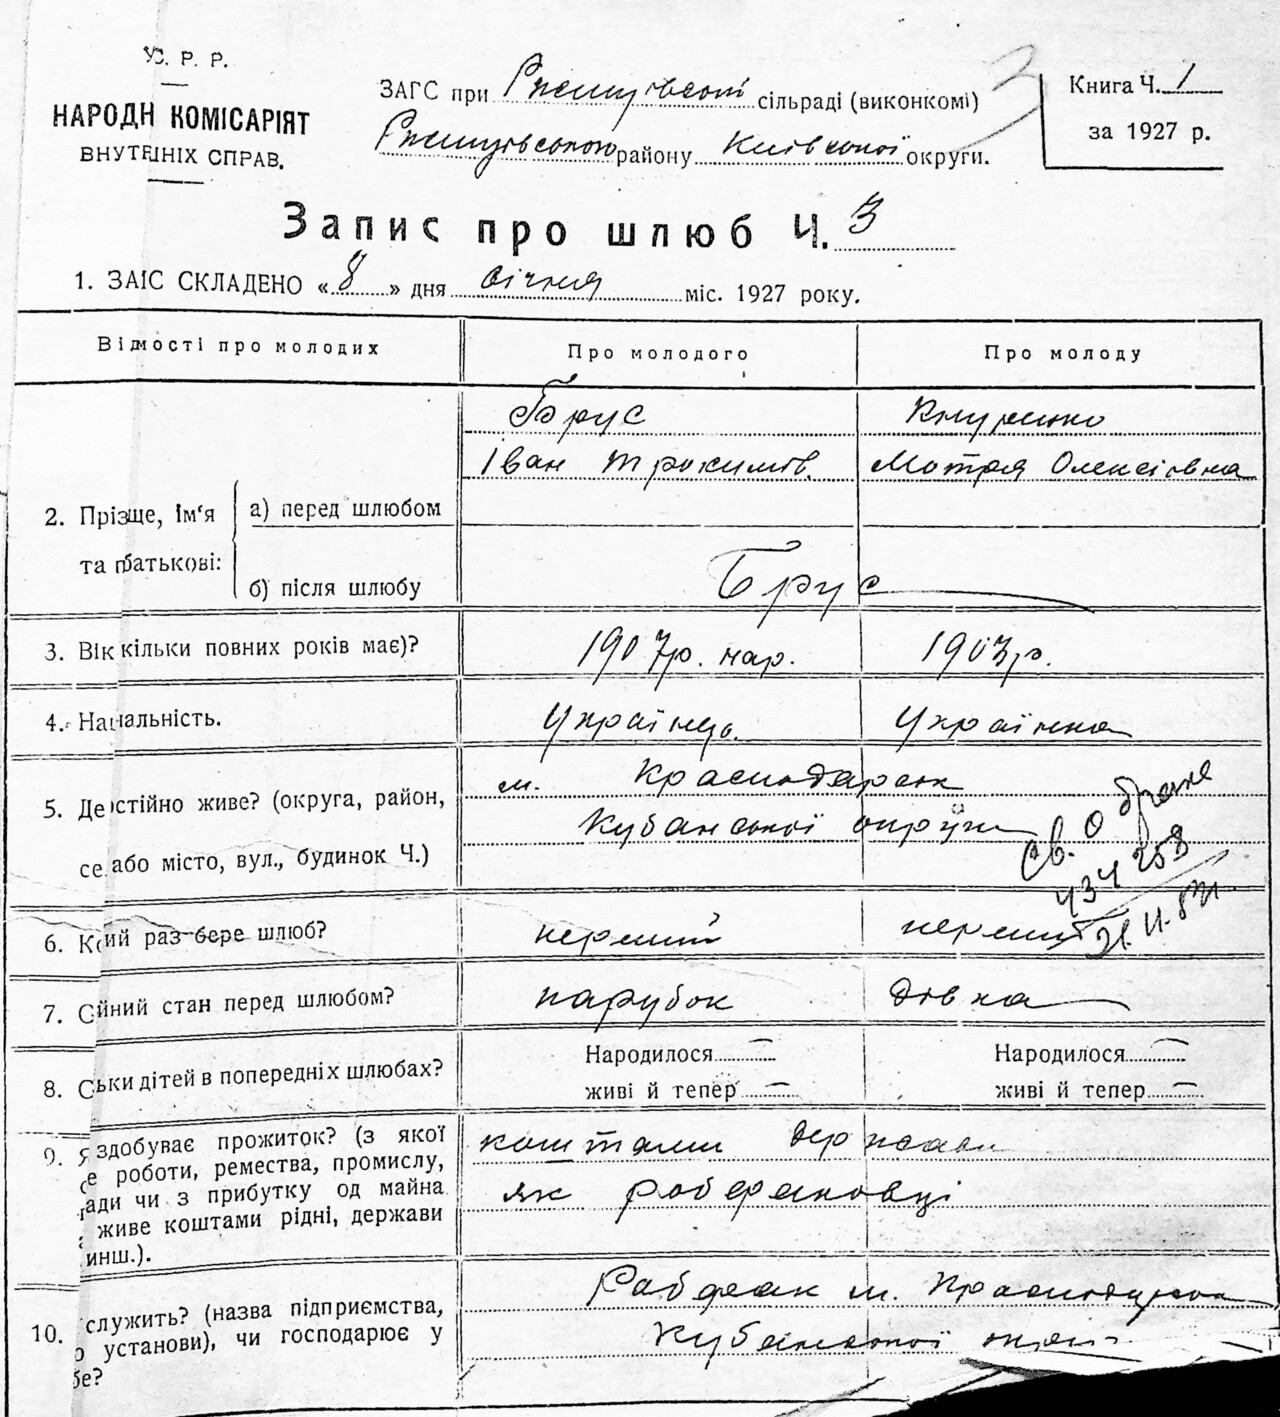 У.С.Р.Р.
НАРОДН КОМІСАРІЯТ
ВНУТРІШНІХ СПРАВ.
ЗАГС при Ржищівській сільраді (виконкомі)
Ржищівського району Київської округи.
3
Книга Ч. 1
за 1927 р.
Запис про шлюб Ч. 3
1. ЗАІС СКЛАДЕНО « 8 » дня січня міс. 1927 року.
Відмості про молодих
Про молодого
Про молоду
Брус
Кнуренко
Іван Трохимів.
Мотря Олексіївна
2. Прізще, Ім'я та батькові:
а) перед шлюбом
б) після шлюбу
Брус
3. Вік кільки повних років має)?
1907р. нар.
1903р.
4. Націальність.
Українець.
Українка
5. Де стійно живе? (округа, район,
се або місто, вул., будинок Ч.)
м. Краснодарськ
Кубанської округи
Св. о браке
434258
21.VI.57г
6. Кий раз бере шлюб?
перший
перший
7. Сійний стан перед шлюбом?
парубок
дівка
8. Ськи дітей в попередніх шлюбах?
Народилося —
живі й тепер —
Народилося —
живі й тепер —
9. Я здобуває прожиток? (з якої
се роботи, ремества, промислу,
ади чи з прибутку од майна
живе коштами рідні, держави
инш.).
коштами держави
як робфаковці
10. служить? (назва підприємства,
о установи), чи господарює у
бе?
Рабфак м. Краснодарськ
Кубанської округи